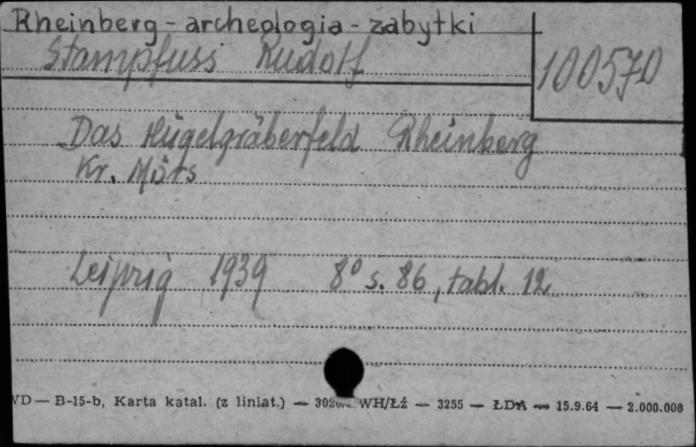 Rheinberg - archeologia - zabytki
Stampfuss Rudolf
100570
Das Hügelgräberfeld Rheinberg
Kr. Mörs
Leipzig 1939 8° s. 86, tabl. 12
VD — B-15-b, Karta katal. (z liniat.) — WH/Łź — 3255 — ŁDA — 15.9.64 — 2.000.000